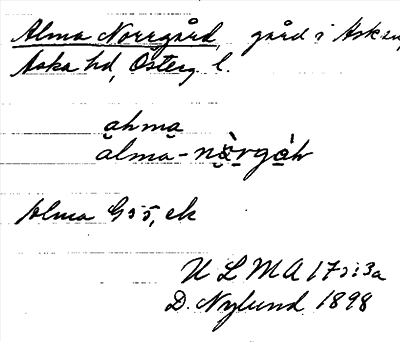 Alma Norrgård, gård i Ask sn,
Aska hd, Österg. l.
ahma
alma-nòrgàh
Alma G 5 5, ek
U L M A 17:3a
D. Nylund 1898